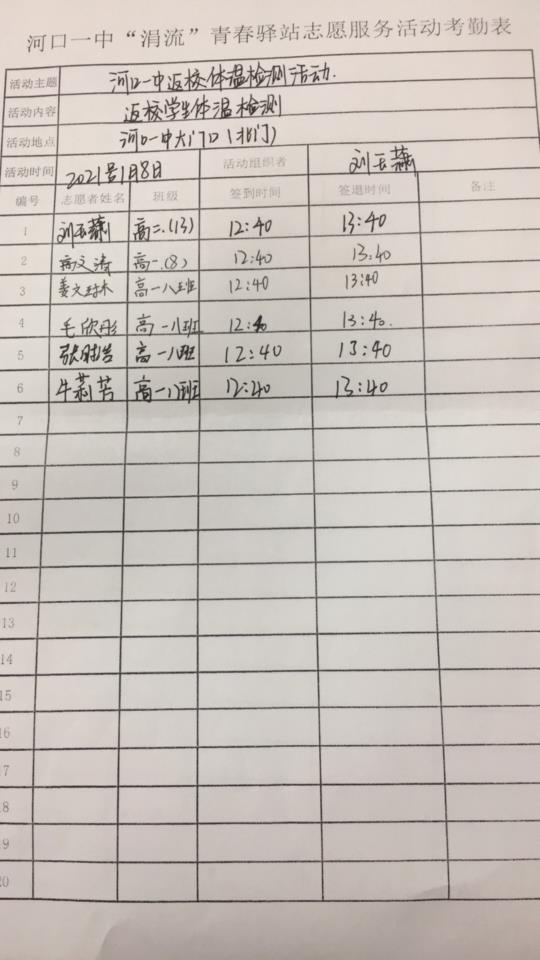 河口一中“涓流”青春驿站志愿服务活动考勤表
活动主题 河口一中返校体温检测活动.
活动内容 返校学生体温检测
活动地点 河口一中大门口(北门)
活动时间 2021年1月8日 活动组织者 刘玉蕭
编号 志愿者姓名 班级 签到时间 签退时间 备注
1 刘玉蕭 高二.(13) 12:40 13:40
2 文涛 高一.(8) 12:40 13:40
3 姜文 高一八班 12:40 13:40
4 毛欣彤 高一八班 12:40 13:40.
5 张 高一八班 12:40 13:40
6 牛莉芳 高一八班 12:40 13:40
7
8
9
10
11
12
13
14
15
16
17
18
19
20